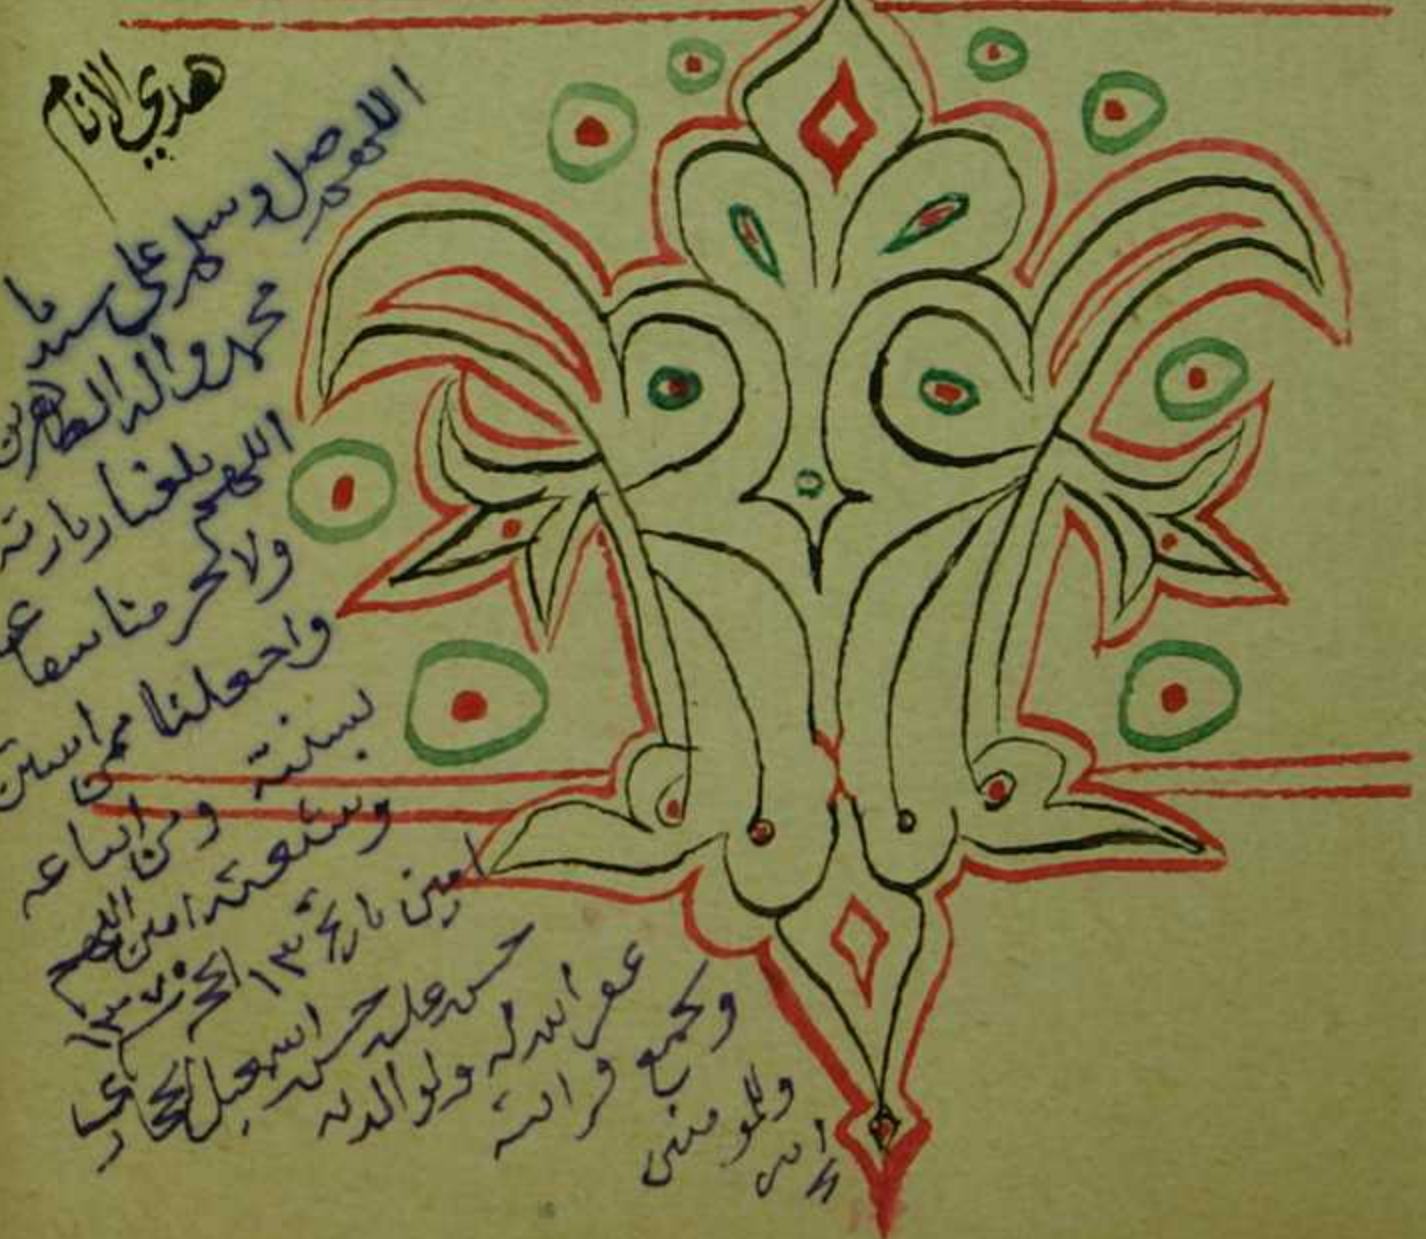 هدي الانام
اللهم صل وسلم على سيدنا
محمد واله الطاهرين
اللهم بلغنا زيارته
ولا تحرمنا
واجعلنا ممن استن
بسنته ومن اتباعه
وشيعته امين اللهم
امين تاريخ ١٣
حسن علي حسن اسمعيل
غفر الله له ولوالديه
ولجميع قرابته
وللمومنين